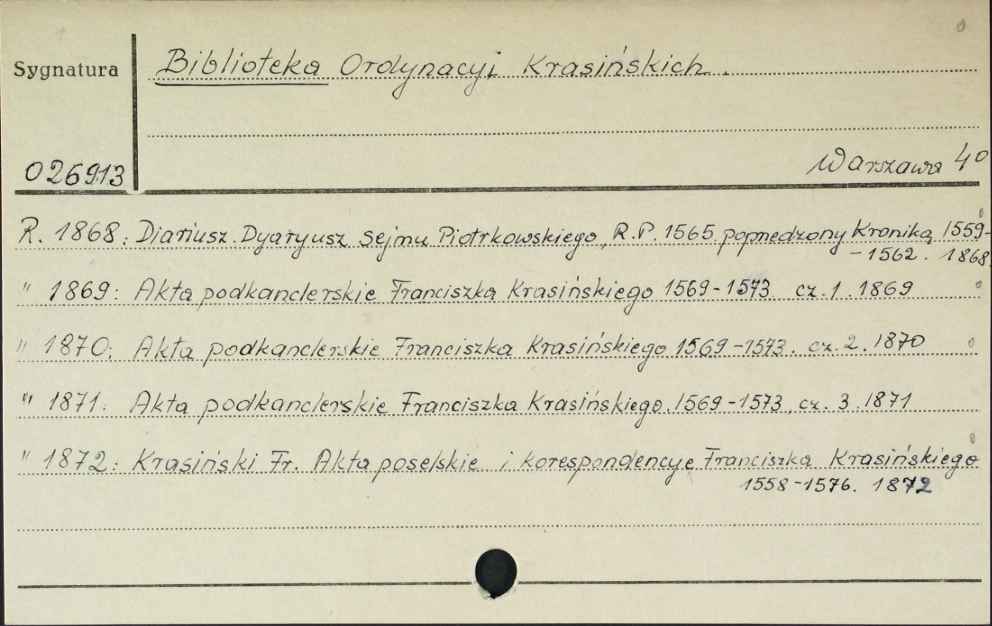 Sygnatura
Biblioteka Ordynacyi Krasińskich.
026913
Warszawa 4°
R. 1868: Diariusz. Dyaryusz sejmu Piotrkowskiego, R.P. 1565 poprzedzony Kroniką 1559-
-1562. 1868
" 1869: Akta podkanclerskie Franciszka Krasińskiego 1569-1573 cz. 1. 1869
" 1870: Akta podkanclerskie Franciszka Krasińskiego 1569-1573. cz. 2. 1870
" 1871: Akta podkanclerskie Franciszka Krasińskiego. 1569-1573, cz. 3. 1871
" 1872: Krasiński Fr. Akta poselskie i korespondencye Franciszka Krasińskiego
1558-1576. 1872